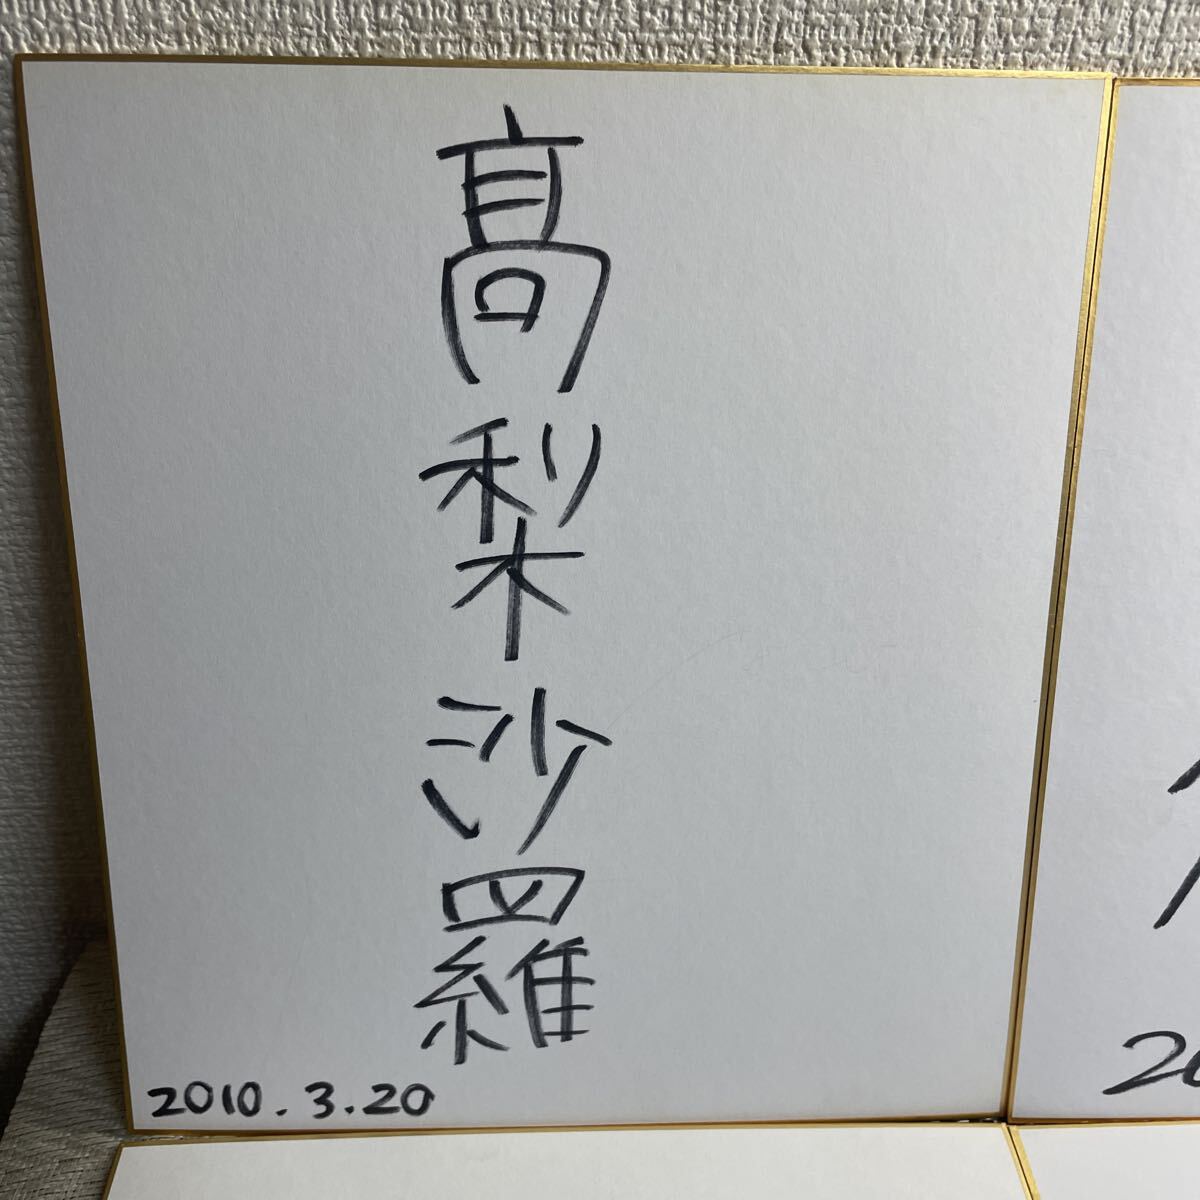 髙梨沙羅
2010.3.20